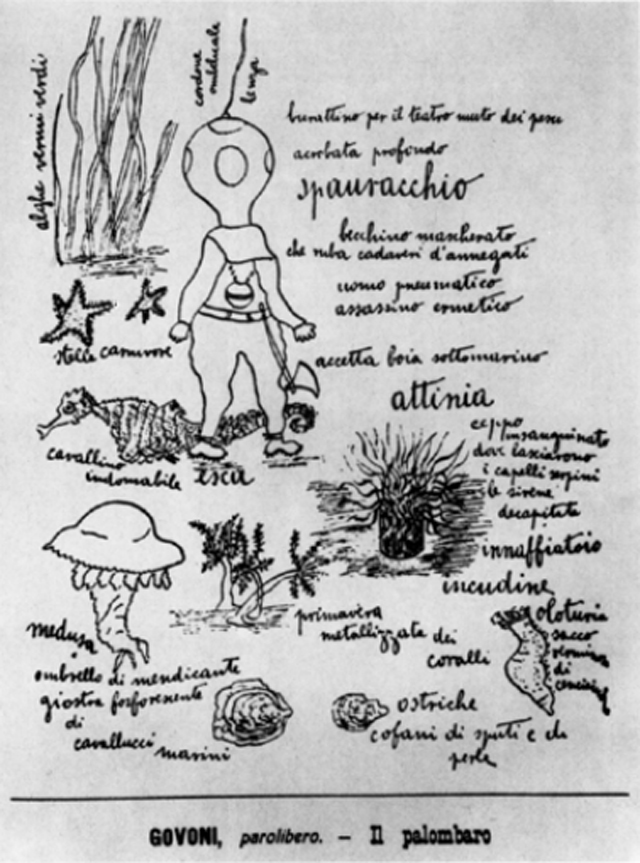 alghe vermi verdi
cordone
ombelicale
lenza
burattino per il teatro muto dei pesci
acrobata profondo
spauracchio
becchino mascherato
che ruba cadaveri d'annegati
uomo pneumatico
assassino ermetico
stelle carnivore
accetta boia sottomarino
attinia
ceppo
insanguinato
dove lasciarono
i capelli serpini
le sirene
decapitate
cavallino
indomabile
esca
innaffiatoio
incudine
medusa
ombrello di mendicante
giostra fosforescente
di
cavallucci
marini
primavera
metallizzata dei
coralli
oloturia
sacco
di
ostriche
cofani di sputi e di
perle
GOVONI, parolibero. — Il palombaro